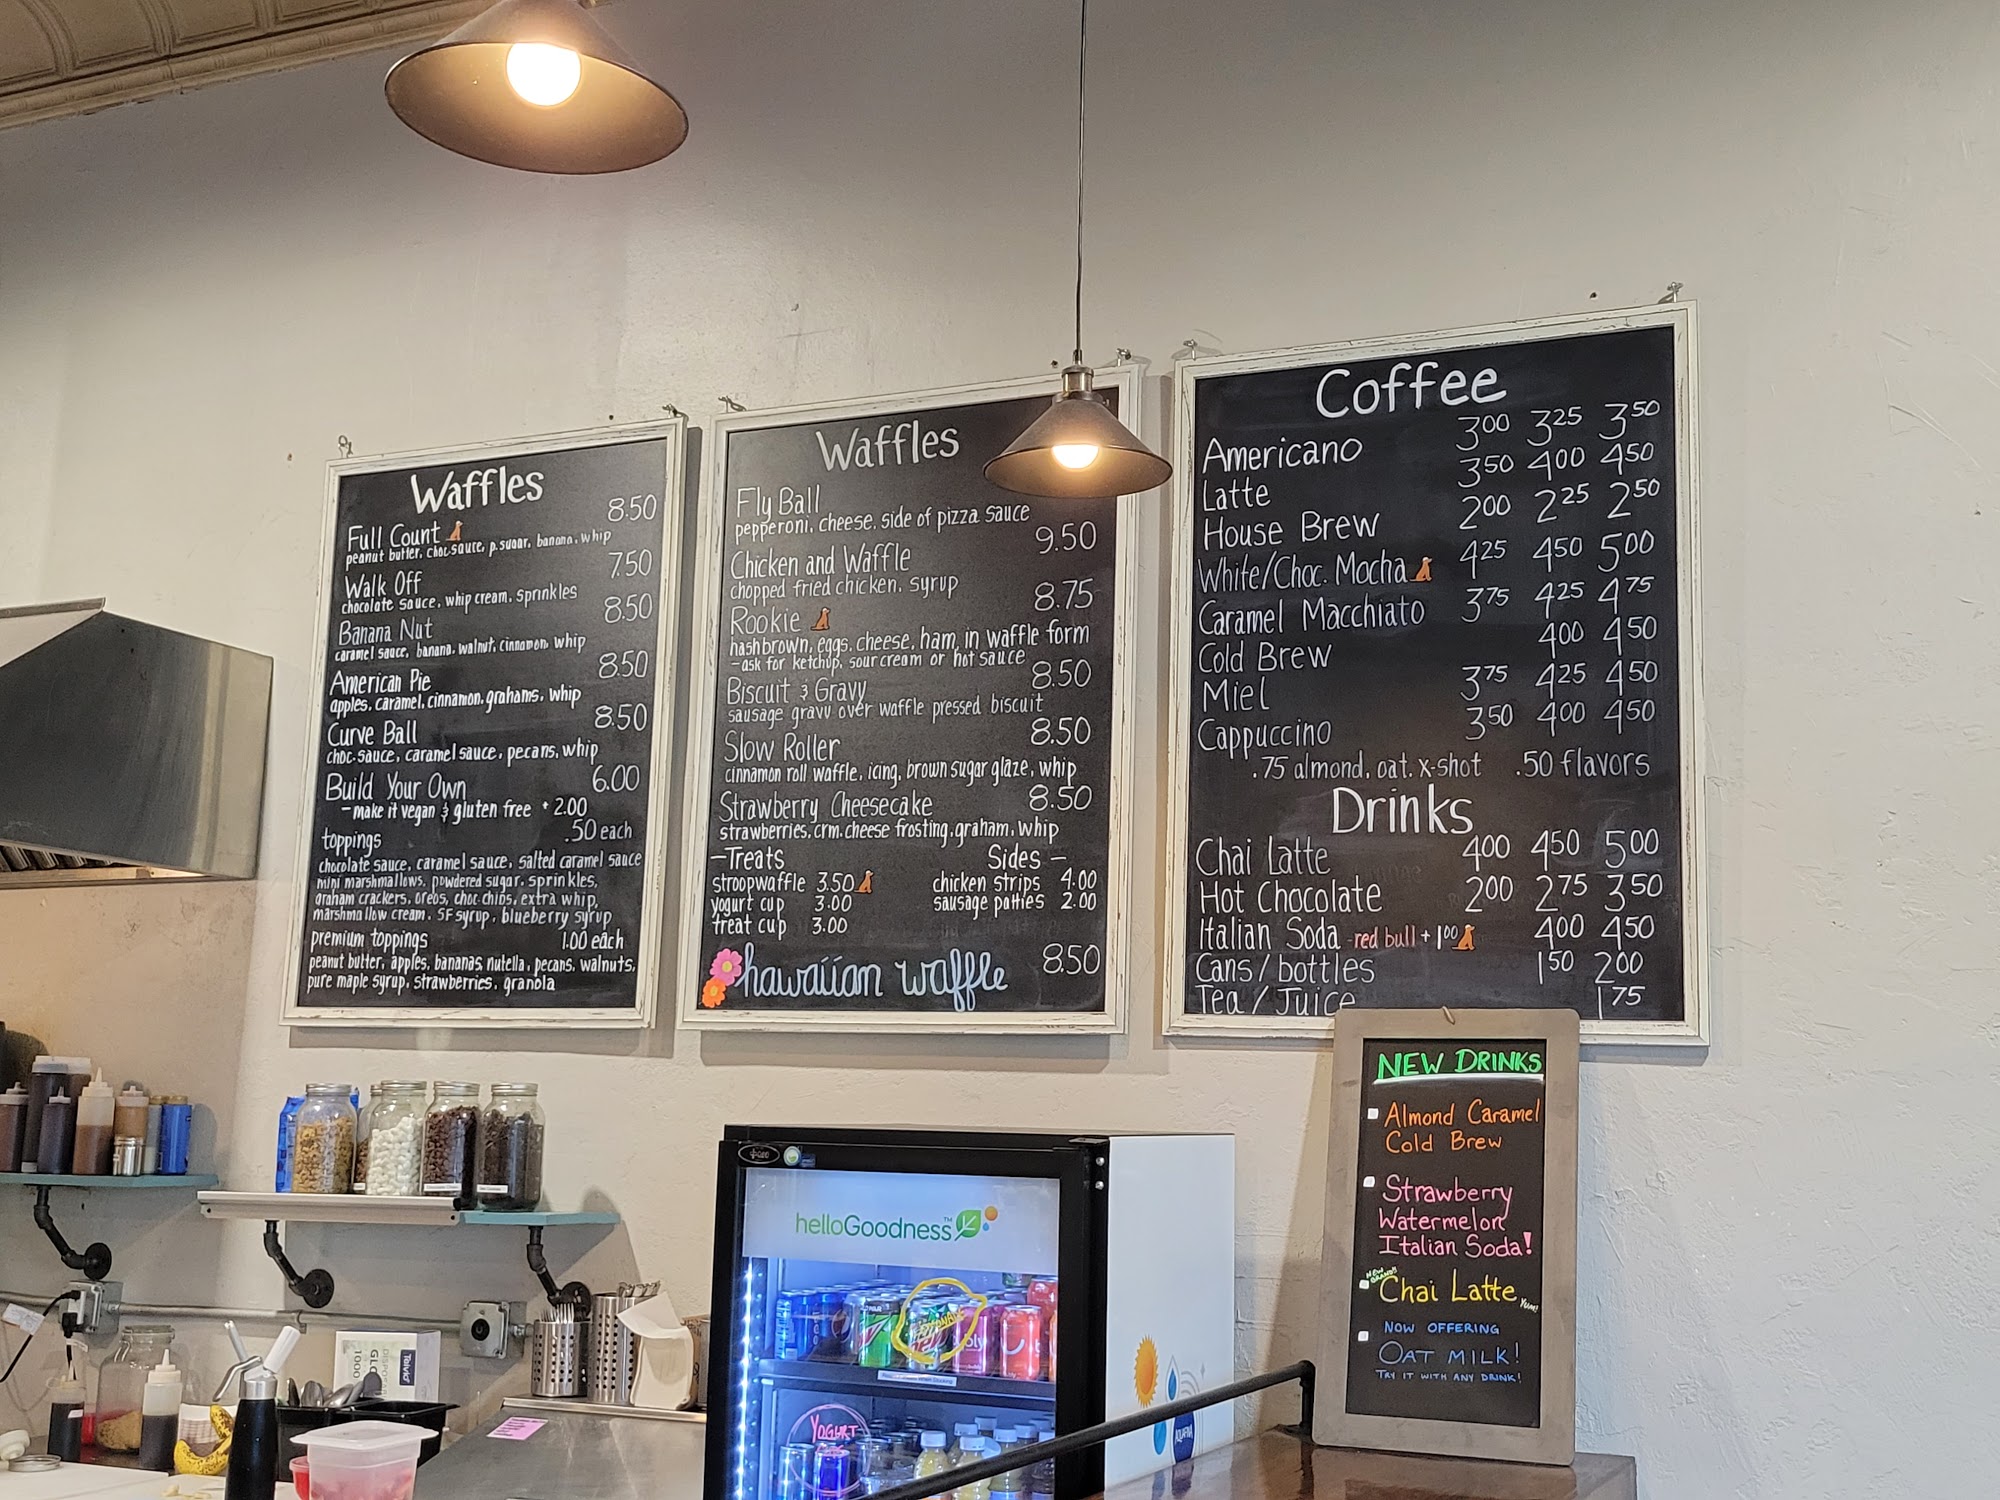 Waffles
Full Count 8.50
peanut butter, choc sauce, p. sugar, banana, whip
Walk Off 7.50
chocolate sauce, whip cream, sprinkles
Banana Nut 8.50
caramel sauce, banana, walnut, cinnamon, whip
American Pie 8.50
apples, caramel, cinnamon, grahams, whip
Curve Ball 8.50
choc. sauce, caramel sauce, pecans, whip
Build Your Own 6.00
- make it vegan & gluten free + 2.00
toppings .50 each
chocolate sauce, caramel sauce, salted caramel sauce
mini marshmallows, powdered sugar, sprinkles,
graham crackers, oreos, choc chips, extra whip,
marshmallow cream, SF syrup, blueberry syrup
premium toppings 1.00 each
peanut butter, apples, bananas, nutella, pecans, walnuts,
pure maple syrup, strawberries, granola
Waffles
Fly Ball
pepperoni, cheese, side of pizza sauce
Chicken and Waffle 9.50
chopped fried chicken, syrup
Rookie 8.75
hashbrown, eggs, cheese, ham, in waffle form
- ask for ketchup, sour cream or hot sauce
Biscuit & Gravy 8.50
sausage gravy over waffle pressed biscuit
Slow Roller 8.50
cinnamon roll waffle, icing, brown sugar glaze, whip
Strawberry Cheesecake 8.50
strawberries, crm. cheese frosting, graham, whip
- Treats Sides -
stroopwaffle 3.50 chicken strips 4.00
yogurt cup 3.00 sausage patties 2.00
treat cup 3.00
hawaiian waffle 8.50
Coffee
Americano 3.00 3.25 3.50
Latte 3.50 4.00 4.50
House Brew 2.00 2.25 2.50
White/Choc. Mocha 4.25 4.50 5.00
Caramel Macchiato 3.75 4.25 4.75
Cold Brew 4.00 4.50
Miel 3.75 4.25 4.50
Cappuccino 3.50 4.00 4.50
.75 almond, oat, x-shot .50 flavors
Drinks
Chai Latte 4.00 4.50 5.00
Hot Chocolate 2.00 2.75 3.50
Italian Soda - red bull + 1.00 4.00 4.50
Cans/bottles 1.50 2.00
Tea / Juice 1.75
NEW DRINKS
Almond Caramel
Cold Brew
Strawberry
Watermelon
Italian Soda!
NEW BRAND!
Chai Latte Yum!
NOW OFFERING
OAT MILK!
TRY IT WITH ANY DRINK!
helloGoodness™
YOGURT
AQUAFINA